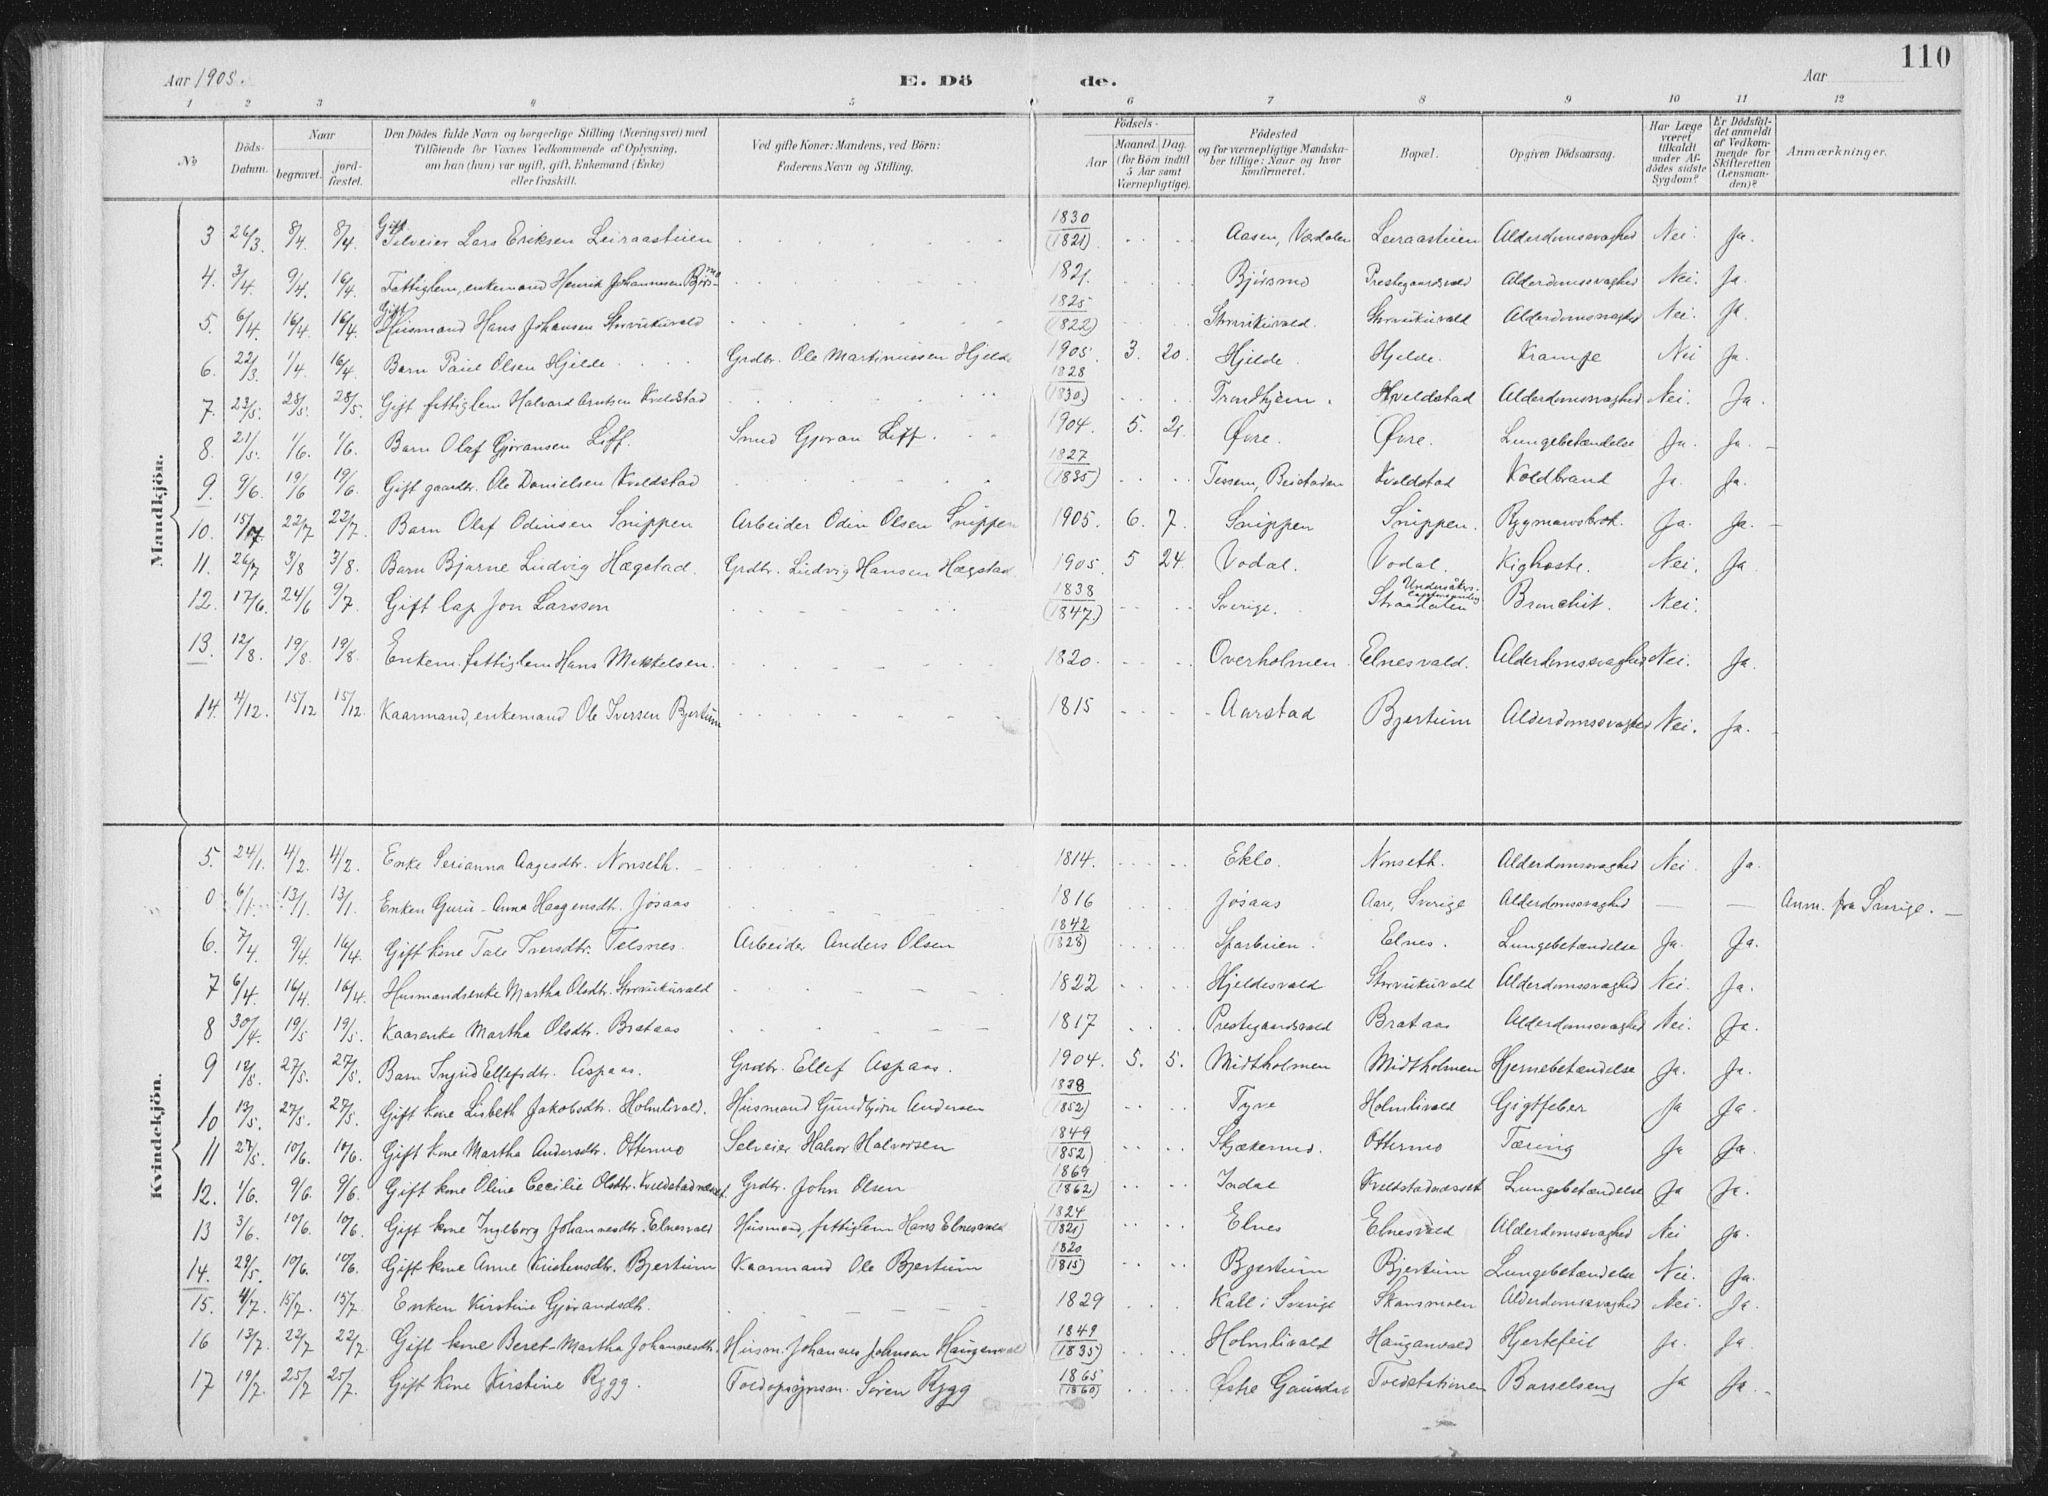 110
Aar 1905. E. Dö de. Aar
1 2 3 4 5 6 7 8 9 10 11 12
No Döds-Datum. Naar begravet. jord-fæstet. Den Dödes fulde Navn og borgerlige Stilling (Næringsvei) med Tilföiende for Voxnes Vedkommende af Oplysning, om han (hun) var ugift, gift, Enkemand (Enke) eller fraskilt. Ved gifte Koner: Mandens, ved Börn: Faderens Navn og Stilling. Födsels- Aar Maaned. Dag. (for Börn indtil 5 Aar samt Værnepligtige). Födested og for værnepligtige Mandskaber tillige: Naar og hvor konfirmeret. Bopæl. Opgiven Dödsaarsag. Har Læge været tilkaldt under Afdödes sidste Sygdom? Er Dödsfaldet anmeldt af Vedkommende for Skifteretten (Lensmanden)? Anmærkninger.
Mandkjön.
3 26/3. 8/4. 8/4. Gift Selveier Lars Eriksen Leiraastuen 1830 (1821) Aasen, Værdalen Leiraastuen Alderdomssvaghed Nei. Ja.
4. 3/4. 9/4. 16/4. Fattiglem, enkemand Henrik Johannesen Bjørsmo 1821. Bjørsmo Prestegaardsvald Alderdomssvaghed Nei. Ja.
5. 6/4. 16/4. 16/4. Gift Husmand Hans Johansen Storvukuvald 1825 (1822) Storvukuvald. Storvukuvald Alderdomssvaghed Nei. Ja.
6. 22/3. 1/4. 16/4. Barn Paul Olsen Hjelde. Grdbr. Ole Martinussen Hjelde 1905. 3. 20. Hjelde. Hjelde. Krampe Nei Ja.
7. 23/5. 28/5. 28/5. Gift fattiglem Halvard Arntsen Kveldstad 1828 (1830) Trondhjem. Kveldstad Alderdomssvaghed Nei. Ja.
8. 21/5. 1/6. 1/6. Barn Olaf Gjøransen Liff. Smed Gjøran Liff. 1904. 5. 21. Øvre. Øvre. Lungebetændelse Ja. Ja.
9. 9/6. 19/6 19/6. Gift gaardbr. Ole Danielsen Kveldstad 1827 (1835) Tessem, Beitstaden Kveldstad Koldbrand Ja. Ja.
10. 15/7. 22/7 22/7. Barn Olaf Odinsen Snippen Arbeider Odin Olsen Snippen 1905. 6. 7. Snippen Snippen. Rygmarvsbrok. Ja. Ja.
11. 26/7 3/8 3/8. Barn Bjarne Ludvig Hægstad. Grdbr. Ludvig Hansen Hægstad. 1905. 5 24. Vodal. Vodal. Kighoste. Nei. Ja
12. 17/6. 24/6 9/7. Gift Lap Jon Larsson 1838 (1847.) Sverige. Straadalen Bronchit. Nei.
13. 12/8. 19/8. 19/8. Enkem. fattiglem Hans Mikkelsen. 1820. Overholmen Elnesvald. Alderdomssvaghed Nei. Ja.
14. 4/12. 15/12 15/12. Kaarmand, enkemand Ole Iversen Bjertum 1815 Aarstad Bjertum Alderdomssvaghed Nei. Ja.
Kvindekjön.
5. 24/1. 4/2. 4/2. Enke Serianna Aagesdtr. Nonseth. 1814. Eklo. Nonseth. Alderdomssvaghed Nei. Ja.
0 6/1. 13/1. 13/1. Enken Guru-Anna Haagensdtr. Jøsaas 1816 Jøsaas Aare, Sverige Alderdomssvaghed — — Anm. fra Sverige.
6. 7/4. 9/4. 16/4. Gift kone Tale Iversdtr. Telsnes. Arbeider Anders Olsen 1842 (1828) Sparbuen. Elnes. Lungebetændelse Ja. Ja.
7 6/4. 16/4. 16/4. Husmandsenke Martha Olsdtr. Storvukuvald 1822 Hjeldesvald Storvukuvald Alderdomssvaghed Nei. Ja.
8 30/4. 19/5 19/5. Kaarenke Martha Olsdtr. Brataas 1817 Prestegaardsvald Brataas Alderdomssvaghed Nei. Ja.
9 18/5. 27/5. 27/5. Barn Ingrid Ellefsdtr. Aspaas. Grdbr. Ellef Aspaas. 1904. 5. 5. Midtholmen Midtholmen Hjernebetændelse Ja. Ja.
10 13/5. 27/5. 27/5. Gift kone Lisbeth Jakobsdtr. Holmlivald. Husmand Gundbjørn Andersen 1828 (1852) Tyve Holmlivald Gigtfeber Ja Ja.
11 27/5. 10/6. 10/6. Gift kone Martha Andersdtr. Ottermo Selveier Halvor Halvorsen 1849 (1852) Skjækermo. Ottermo Tæring Ja Ja.
12. 1/6. 9/6. 9/6. Gift kone Oline Cecilie Olsdtr. Kveldstadnæsset Grdbr. John Olsen 1869 (1862) Indal Kveldstadnæsset Lungebetændelse Ja Ja.
13 3/6. 10/6. 10/6. Gift kone Ingeborg Johannesdtr. Elnesvald Husmand, fattiglem Hans Elnesvald 1824 (1821) Elnes Elnesvald Alderdomssvaghed Nei Ja.
14. 29/5. 10/6. 10/6. Gift kone Anne Kristensdtr. Bjertum Kaarmand Ole Bjertum 1820 (1815) Bjertum Bjertum Lungebetændelse Nei. Ja.
15. 4/7. 15/7. 15/7. Enken Kirstine Gjørandsdtr. 1829 Kall i Sverige Skansmoen Alderdomssvaghed Nei. Ja.
16 13/7. 22/7 22/7. Gift kone Beret-Martha Johannesdtr. Husm. Johannes Johnsen Hauganvald 1849 (1835) Holmlivald Hauganvald Hjertefeil Ja. Ja
17 19/7. 25/7 25/7. Gift kone Kirstine Rygg. Toldopsynsm. Søren Rygg 1865 (1860) Østre Gausdal Toldstationen Barselseng Ja Ja.